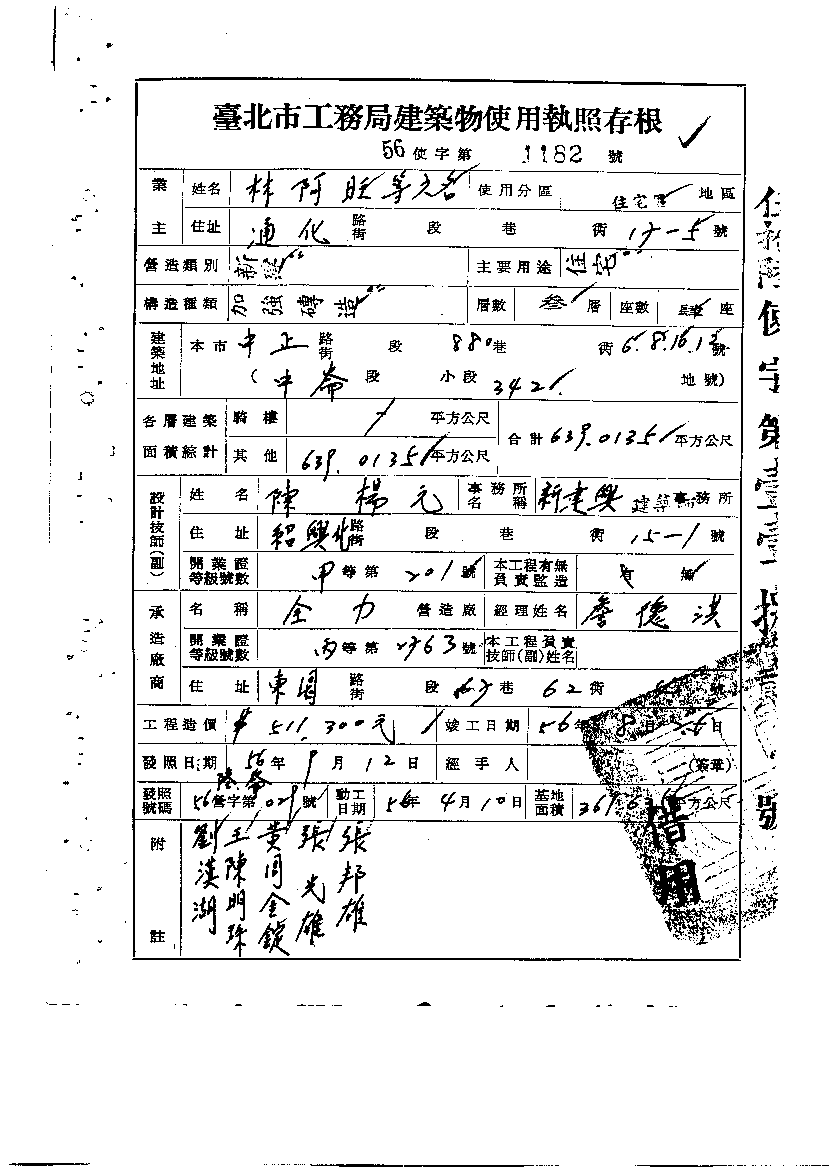 臺北市工務局建築物使用執照存根
56使字第 1182 號
業主 姓名 林阿旺等 使用分區 住宅 地區
住址 通化 路街 段 巷 衖 17-5 號
營造類別 新 主要用途 住宅
構造種類 加強磚造 層數 叁 層 座數 座
建築地址 本市 中正 路街 段 880巷 衖 6.8.16. 號
(中崙段 小段 342 地號)
各層建築面積綜計 騎樓 平方公尺 合計 639.0135 平方公尺
其他 639.0135 平方公尺
設計技師(副) 姓名 陳楊元 事務所名稱 新建興建築師事務所
住址 紹興北 路街 段 巷 衖 15-1 號
開業證等級號數 甲等第 201 號 本工程有無負責監造 有 無
承造廠商 名稱 全力 營造廠 經理姓名 詹德淇
開業證等級號數 丙等第 63 號 本工程負責技師(副)姓名
住址 東園 路街 段 巷 62衖 號
工程造價 511,300元 竣工日期 56年 8月 日
發照日期 56年 9月 12日 經手人 (簽章)
發照號碼 56營字第 號 動工日期 56年 4月 10日 基地面積 平方公尺
附註
張邦雄
張光雄
黃周金錠
王陳明珠
劉漢湖
借用
號